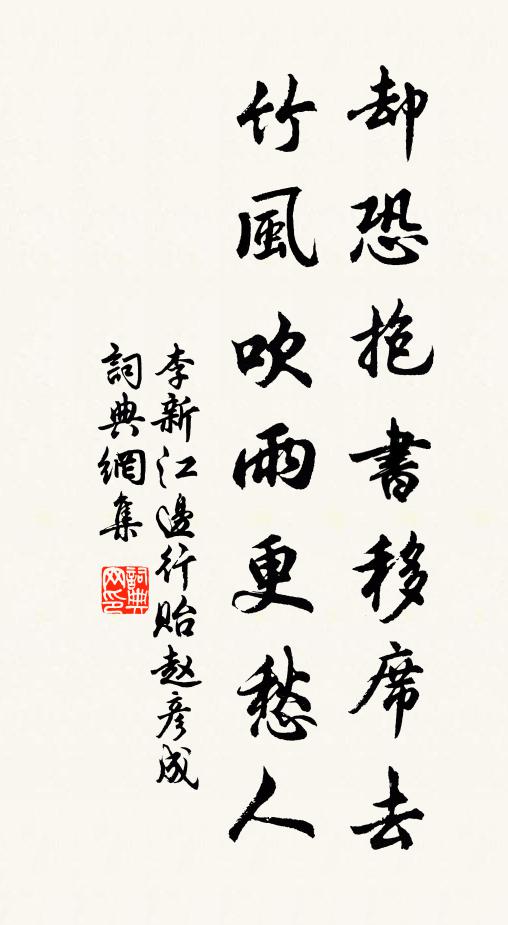 却恐抱書移席去
竹風吹雨更愁人
李新江邊行貽赵彦成
詞典網集
詞典网印